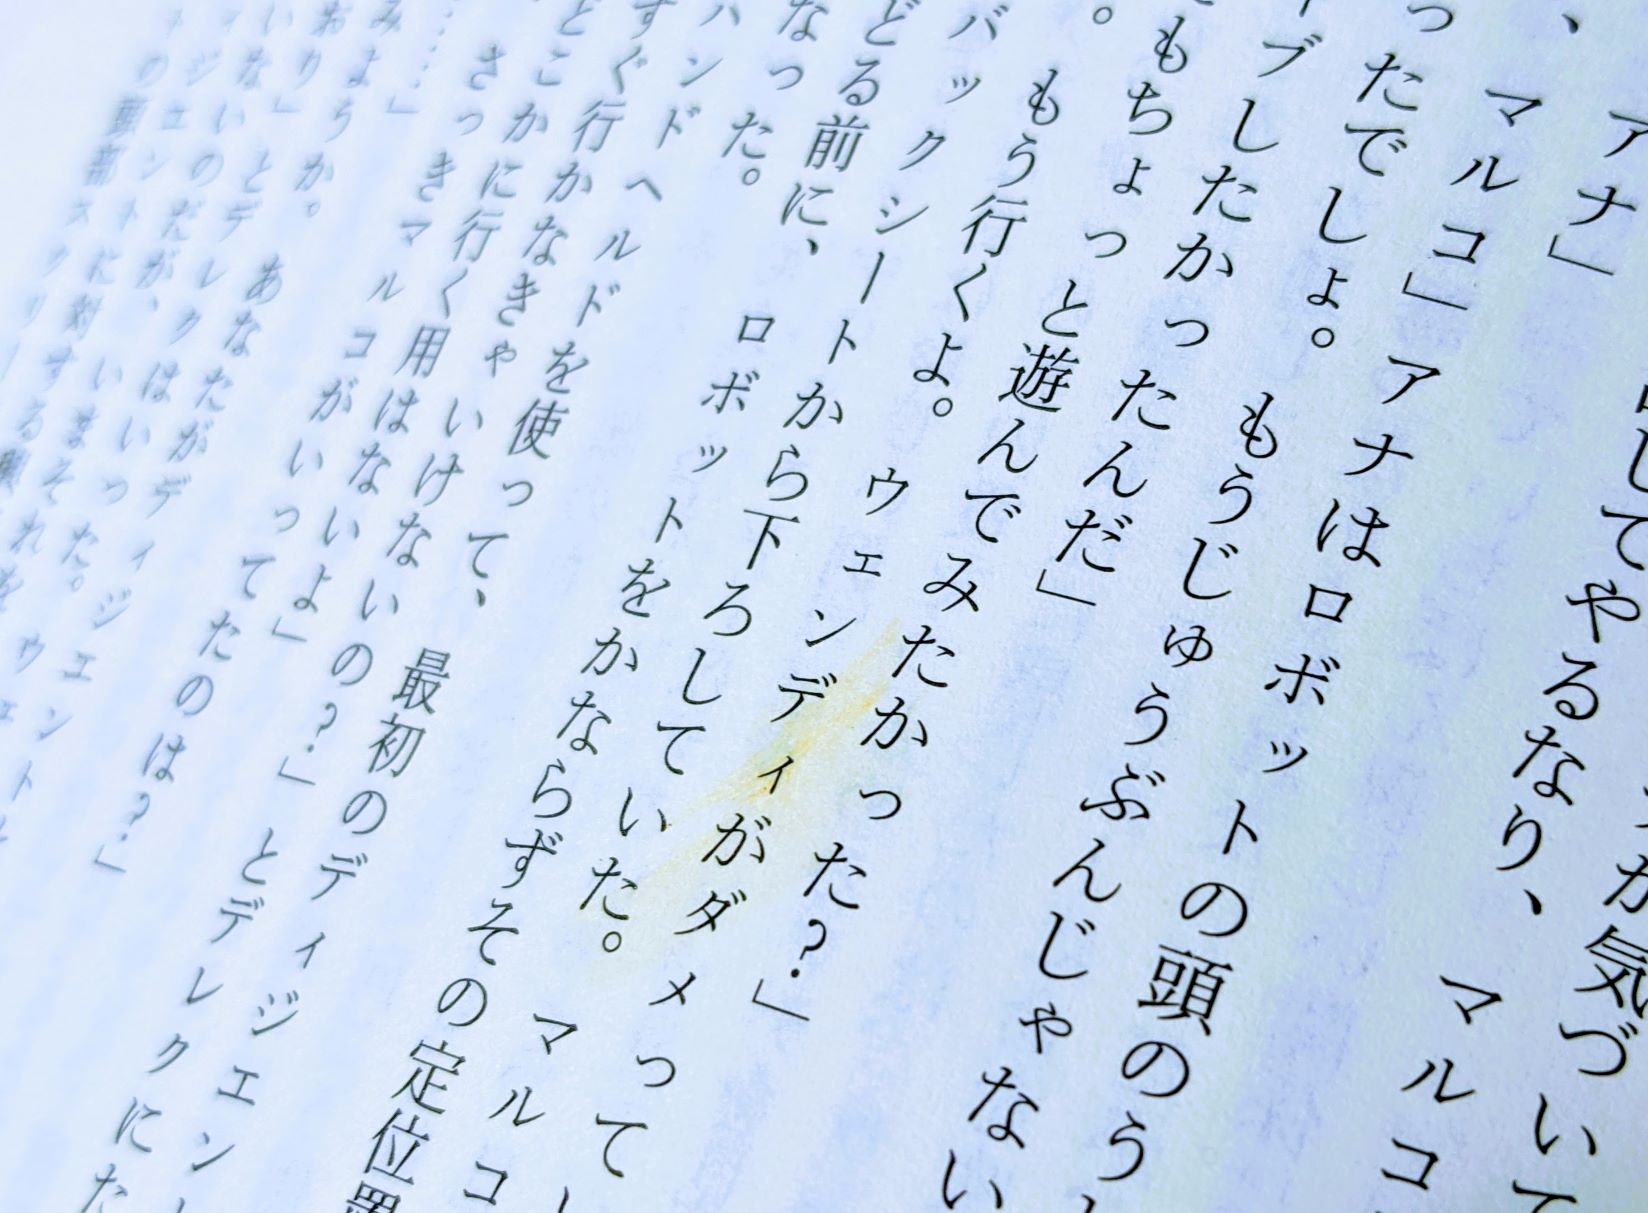 が気づいて
してやるなり、　マルコ
アナ」
、マルコ」アナはロボットの頭のう
ったでしょ。もうじゅうぶんじゃない
ーブしたかったんだ」
もちょっと遊んでみたかった？」
。もう行くよ。ウェンディがダメって
バックシートから下ろしていた。マルコ
どる前に、ロボットをかならずその定位置
なった。
ハンドヘルドを使って、最初のディジエン
すぐ行かなきゃいけないの？」とデレクにた
どこかに行く用はないよ」
さっきマルコがいってたのは？」
……」
みようか。あなたがディジエン
おり」とデレクはいった。